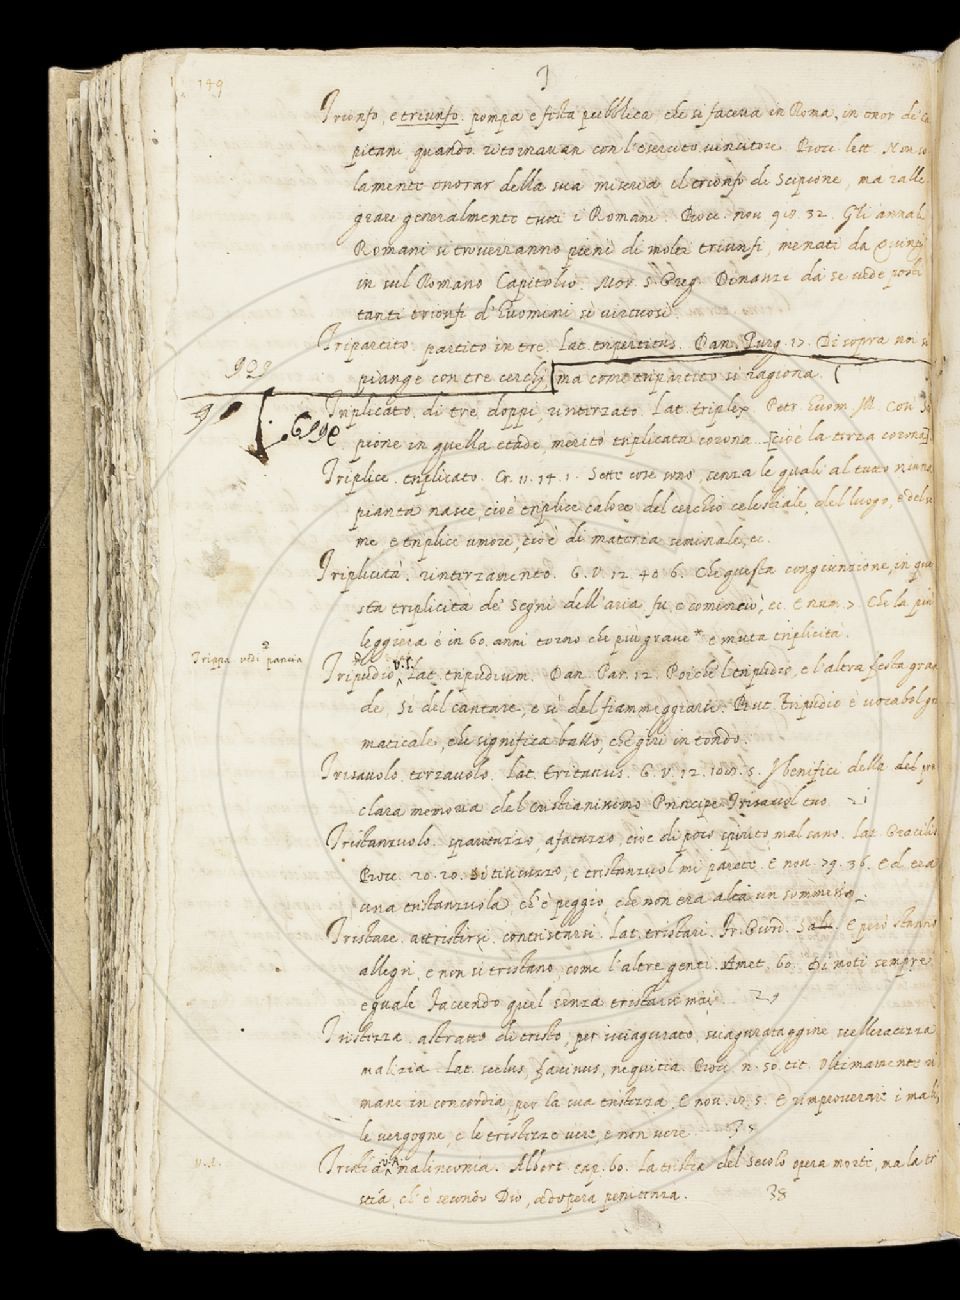 149
T
Trionfo, e triunfo. pompa e festa pubblica che si faceva in Roma, in onor de' Ca
pitani, quando ritornavan con l'esercito vincitore. Bocc. lett. Non so
lamente onorar della sua miseria il trionfo di Scipione, ma ralle
grare generalmente tutti i Romani. Bocc. nov. 32. Gli annali
Romani si troverranno pieni di molti triunfi, menati da
in sul Romano Capitolio. Mor. S. Greg. Dinanzi da se vede posti
tanti trionfi d'Huomini sì virtuosi.
Tripartito. partito in tre. Lat. tripertitus. Dan. Purg. 17. Di sopra noi si
piange con tre cerchj ma come tripartito si ragiona.
929
Triplicato. di tre doppi, rinterzato. Lat. triplex. Petr. Huom. Ill. Con Sci
pione in quella etade, meritò triplicata corona. [cioè la terza corona].
Triplice. triplicato. Cr. 2. 14. 1. Sette cose sono, senza le quali al tutto niuna
pianta nasce, cioè triplice calore del cerchio celestiale, del luogo, e del se
me e triplice umore, cioè di materia seminale, ec.
Triplicità. rinterzamento. G. V. 12. 40. 6. Che questa congiunzione, in que
sta triplicità de' segni dell'aria fu, e cominciò, ec. E num. 7. Che la più
leggiera è in 60. anni torno che più grave * e muta triplicità.
Trippa vedi pancia
Tripudio v.L. Lat. tripudium. Dan. Par. 12. Poichè 'l tripudio, e l'altra festa gran
de, Sì del cantare, e sì del fiammeggiarsi. But. Tripudio è vocabol gra
maticale, che significa ballo, che giri in tondo.
Trisavolo. terzavolo. Lat. tritavus. G. V. 12. 108. 5. I benifici della del pre
clara memoria del cristianissimo Principe Trisavol tuo.
Tristanzuolo. sparutuzzo, afatuzzo, cioè di poco spirito, mal sano. Lat. Gracilis
Bocc. 20. 20. Sì tisicuzzo, e tristanzuol mi parete. E nov. 79. 36. Ed era
una tristanzuola, ch'è peggio, che non era alta un sommesso.
Tristare. attristirsi. contristarsi. Lat. tristari. Fr. Giord. Salv. E però stanno
allegri, e non si tristano, come l'altre genti. Amet. 60. Di moti sempre
eguale facciendo quel senza tristarsi mai.
Tristizza. astratto di tristo, per isciagurato, sciagurataggine scelleratezza
malizia. Lat. scelus, facinus, nequitia. Bocc. n. 50. tit. Ultimamente ri
mane in concordia, per la sua tristizza, E nov. 5. E rimproverare i mali,
le vergogne, e le tristizze vere, e non vere.
v.L.
Tristia v.L. malinconia. Albert. cap. 60. La tristia del secolo opera morte, ma la tri
stia, ch'è secondo Dio, adopera penitenza. 38